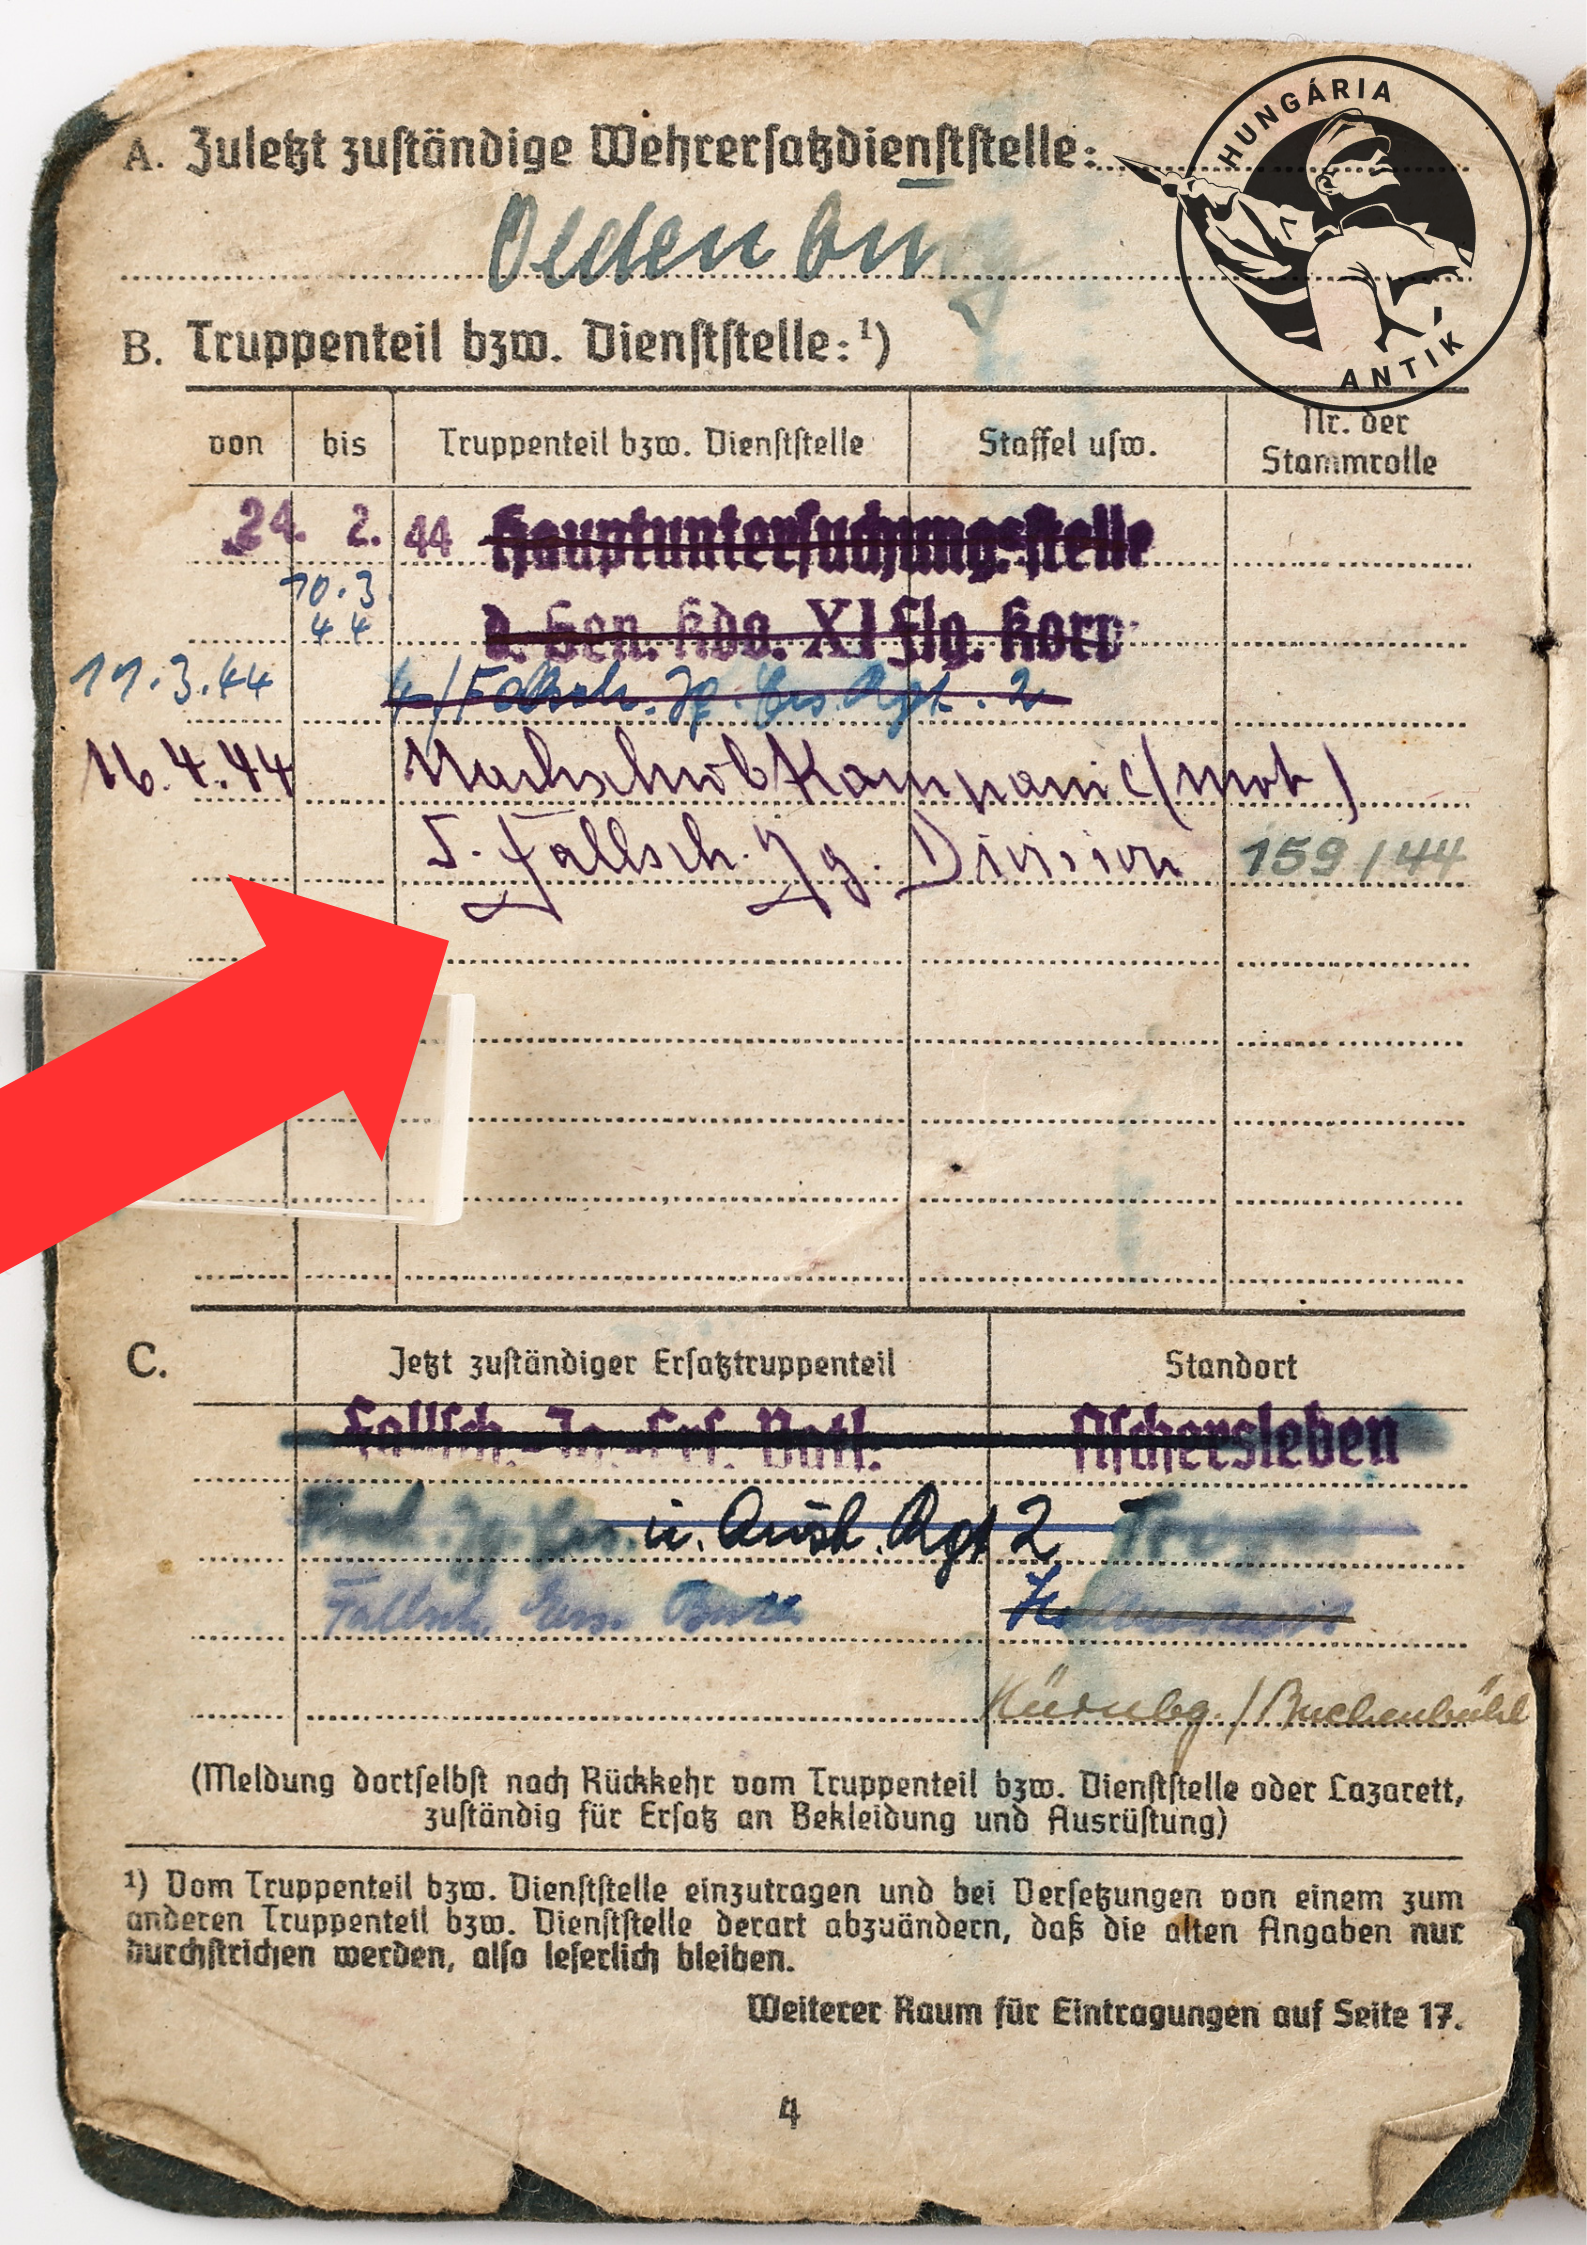 HUNGÁRIA
ANTIK
A. Zuletzt zuständige Wehrersatzdienststelle:
Oldenburg
B. Truppenteil bzw. Dienststelle:¹)
von bis Truppenteil bzw. Dienststelle Staffel usw. Nr. der Stammrolle
24. 2. 44 Hauptuntersuchungsstelle
10.3
44 d. Gen. Kdo. XI Flg. Korp
11.3.44 4/Fallsch. Jg. Ers. Rgt. 2
16.4.44 Nachschub Kompanie (mot)
5. Fallsch. Jg. Division 159/44
C. Jetzt zuständiger Ersatztruppenteil Standort
Fallsch. Jg. Ers. Batl. Aschersleben
Jg. Ers. u. Ausb. Rgt 2
Fallsch. Ers. Batl.
Nürnbg. / Buchenbühl
(Meldung dortselbst nach Rückkehr vom Truppenteil bzw. Dienststelle oder Lazarett,
zuständig für Ersatz an Bekleidung und Ausrüstung)
¹) Vom Truppenteil bzw. Dienststelle einzutragen und bei Versetzungen von einem zum
anderen Truppenteil bzw. Dienststelle derart abzuändern, daß die alten Angaben nur
durchstrichen werden, also leserlich bleiben.
Weiterer Raum für Eintragungen auf Seite 17.
4